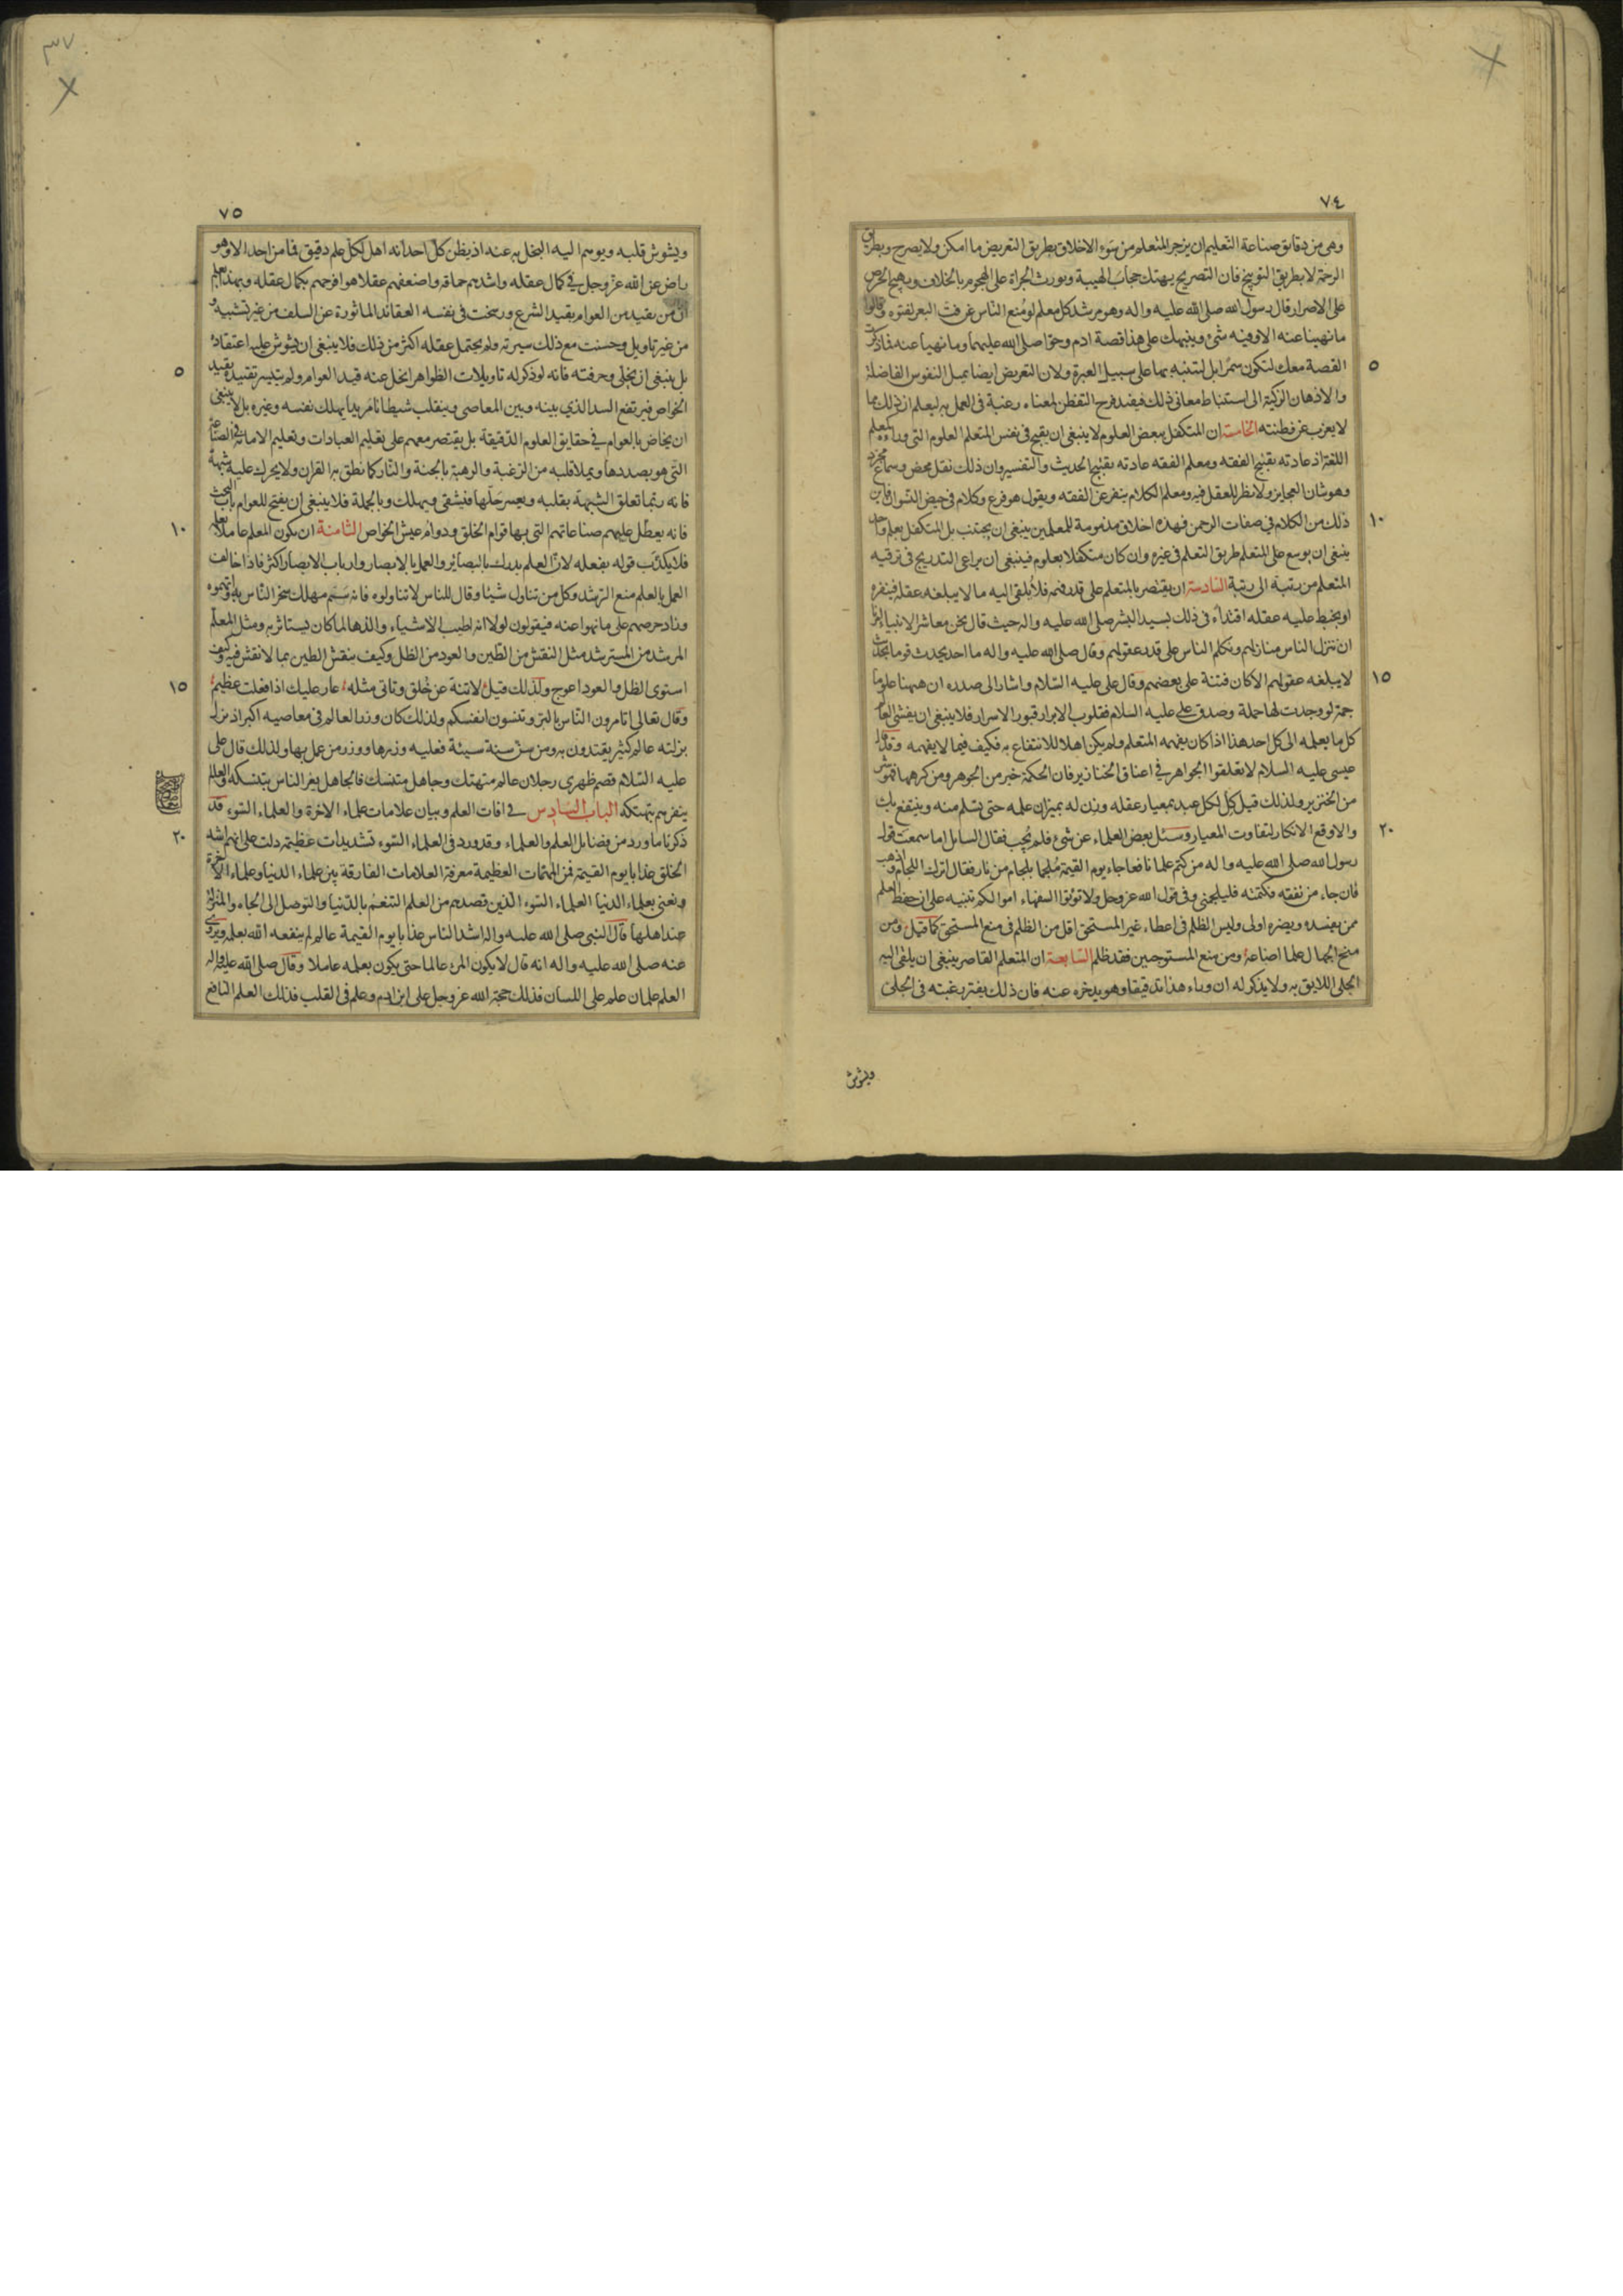 ٧٤
وهى من دقايق صناعة التعليم ان يزجر المتعلم من سوء الاخلاق بطريق التعريض ما امكن ولا يصرح وبطريق
الرحمة لا بطريق التوبيخ فان التصريح يهتك حجاب الهيبة ويورث الجراة على الهجوم بالخلاف ويهيج الحرص
على الاصرار قال رسول الله صلى الله عليه واله وهو مرشد كل معلم لو مُنع الناس عن فت البعر لفتوه وقالوا
ما نهينا عنه الا وفيه شئ وينبهك على هذا قصة ادم وحوا صلى الله عليهما وما نهيا عنه فما ذكرت
القصة معك لتكون سمرًا بل لتتنبه بها على سبيل العبرة ولان التعريض ايضا يميل النفوس الفاضلة
٥
والاذهان الزكية الى استنباط معانى ذلك فيفيد فرح التفطن لمعناه رغبة فى العمل به ليعلم ان ذلك مما
لا يعزب عن فطنته الخامسة ان المتكفل ببعض العلوم لا ينبغى ان يقبح فى نفس المتعلم العلوم التى وراءه كمعلم
اللغة اذ عادته تقبيح الفقه ومعلم الفقه عادته تقبيح الحديث والتفسير وان ذلك نقل محض وسماع مجرد
وهو شان العجايز ولا نظر للعقل فيه ومعلم الكلام ينفر عن الفقه ويقول هو فرع وكلام فى حيض النسوان فاين
ذلك من الكلام فى صفات الرحمن فهذه اخلاق مذمومة للمعلمين ينبغى ان يجتنب بل المتكفل بعلم واحد
١٠
ينبغى ان يوسع على المتعلم طريق التعلم فى غيره وان كان متكفلا بعلوم فينبغى ان يراعى التدريج فى ترقيه
المتعلم من رتبة الى رتبة السادسة ان يقتصر بالمتعلم على قدر فهمه فلا يُلقى اليه ما لا يبلغه عقله فينفره
او يخبط عليه عقله اقتداءً فى ذلك بسيد البشر صلى الله عليه واله حيث قال نحن معاشر الانبياء امرنا
ان ننزل الناس منازلهم ونكلم الناس على قدر عقولهم وقال صلى الله عليه واله ما احد يحدث قوما بحديث
لا يبلغه عقولهم الا كان فتنة على بعضهم وقال على عليه السلام واشار الى صدره ان ههنا علوما
١٥
جمة لو وجدت لها حملة وصدق على عليه السلام فقلوب الابرار قبور الاسرار فلا ينبغى ان يفشى العالم
كل ما يعلمه الى كل احد هذا اذا كان يفهمه المتعلم ولم يكن اهلا للانتفاع به فكيف فيما لا يفهمه وقد قال
عيسى عليه السلام لا تعلقوا الجواهر فى اعناق الخنازير فان الحكمة خير من الجوهر ومن كرهها فهو شر
من الخنزير ولذلك قيل كِل لكل عبد بمعيار عقله وزن له بميزان علمه حتى تسلم منه وينتفع بك
والا وقع الانكار لتفاوت المعيار وسئل بعض العلماء عن شئ فلم يُجب فقال السايل اما سمعت قول
٢٠
رسول الله صلى الله عليه واله من كتم علما نافعا جاء يوم القيمة مُلجما بلجام من نار فقال اترك اللجام واذهب
فان جاء من نفقه فكتمته فليلجمنى وفى قول الله عز وجل ولا تؤتوا السفهاء اموالكم تنبيه على ان حفظ العلم
ممن يفسده ويضره اولى وليس الظلم فى اعطاء غير المستحق اقل من الظلم فى منع المستحق كما قيل ومن
منح الجهال علما اضاعهُ ومن منع المستوجبين فقد ظلم السابعة ان المتعلم القاصر ينبغى ان يلقى اليه
الجلى اللايق به ولا يذكر له ان وراء هذا تدقيقا وهو يدخره عنه فان ذلك يفتر رغبته فى الجلى
ويشوش
٣٧
٧٥
ويشوش قلبه ويوهم اليه البخل به عنه اذ يظن كل احد انه اهل لكل علم دقيق فما من احد الا وهو
راض عن الله عز وجل فى كمال عقله واشدهم حماقة واضعفهم عقلا هو افرحهم بكمال عقله وبهذا يعلم
ان من تقيد من العوام بقيد الشرع ورسخت فى نفسه العقائد الماثورة عن السلف من غير تشبيه و
من غير تاويل وحسنت مع ذلك سيرته ولم يحتمل عقله اكثر من ذلك فلا ينبغى ان يشوش عليه اعتقاده
بل ينبغى ان يخلى وحرفته فانه لو ذكر له تاويلات الظواهر انحل عنه قيد العوام ولم يتيسر تقييده بقيد
٥
الخواص فيرتفع السد الذي بينه وبين المعاصى وينقلب شيطانا مريدا يهلك نفسه وغيره بل لا ينبغى
ان يخاض بالعوام فى حقايق العلوم الدقيقة بل يقتصر معهم على تعليم العبادات وتعليم الامانة فى الصناعة
التى هو بصددها ويملا قلبه من الرغبة والرهبة بالجنة والنار كما نطق به القران ولا يحرك عليه شبهة
فانه ربما تعلق الشبهة بقلبه ويعسر حلها فيشقى ويهلك وبالجملة فلا ينبغى ان يفتح للعوام باب البحث
فانه يعطل عليهم صناعاتهم التى بها قوام الخلق ودوام عيش الخواص الثامنة ان يكون المعلم عاملا بعلمه
١٠
فلا يكذب قوله بفعله لان العلم يدرك بالبصائر والعمل بالابصار وارباب الابصار اكثر فاذا خالف
العمل بالعلم منع الرشد وكل من تناول شيئا وقال للناس لا تناولوه فانه سَم مهلك سخر الناس به واتهموه
وزاد حرصهم على ما نهوا عنه فيقولون لولا انه اطيب الاشياء والذها لما كان يستاثر به ومثل المعلم
المرشد من المسترشد مثل النقش من الطين والعود من الظل وكيف ينقش الطين بما لا نقش فيه وكيف
استوى الظل والعود اعوج ولذلك قيل لا تنه عن خُلق وتاتى مثله عار عليك اذا فعلت عظيم
١٥
وقال تعالى اتامرون الناس بالبر وتنسون انفسكم ولذلك كان وزر العالم فى معاصيه اكبر اذ يزل
بزلته عالم كثير يقتدون به ومن سنّ سنة سيئة فعليه وزرها ووزر من عمل بها ولذلك قال على
عليه السلام قصم ظهرى رجلان عالم متهتك وجاهل متنسك فالجاهل يغر الناس بتنسكه والعالم
ينفرهم بتهتكه الباب السادس فى افات العلم وبيان علامات علماء الاخرة والعلماء السوء قد
ذكرنا ما ورد من فضايل العلم والعلماء وقد ورد فى العلماء السوء تشديدات عظيمة دلت على انهم اشد
٢٠
الخلق عذابا يوم القيمة فمن المهمات العظيمة معرفة العلامات الفارقة بين علماء الدنيا وعلماء الاخرة
ونعنى بعلماء الدنيا العلماء السوء الذين قصدهم من العلم التنعم بالدنيا والتوصل الى الجاه والمنزلة
عند اهلها قال النبى صلى الله عليه واله اشد الناس عذابا يوم القيمة عالم لم ينفعه الله بعلمه ويروى
عنه صلى الله عليه واله انه قال لا يكون المرء عالما حتى يكون بعلمه عاملا وقال صلى الله عليه واله
العلم علمان علم على اللسان فذلك حجة الله عز وجل على ابن ادم وعلم فى القلب فذلك العلم النافع